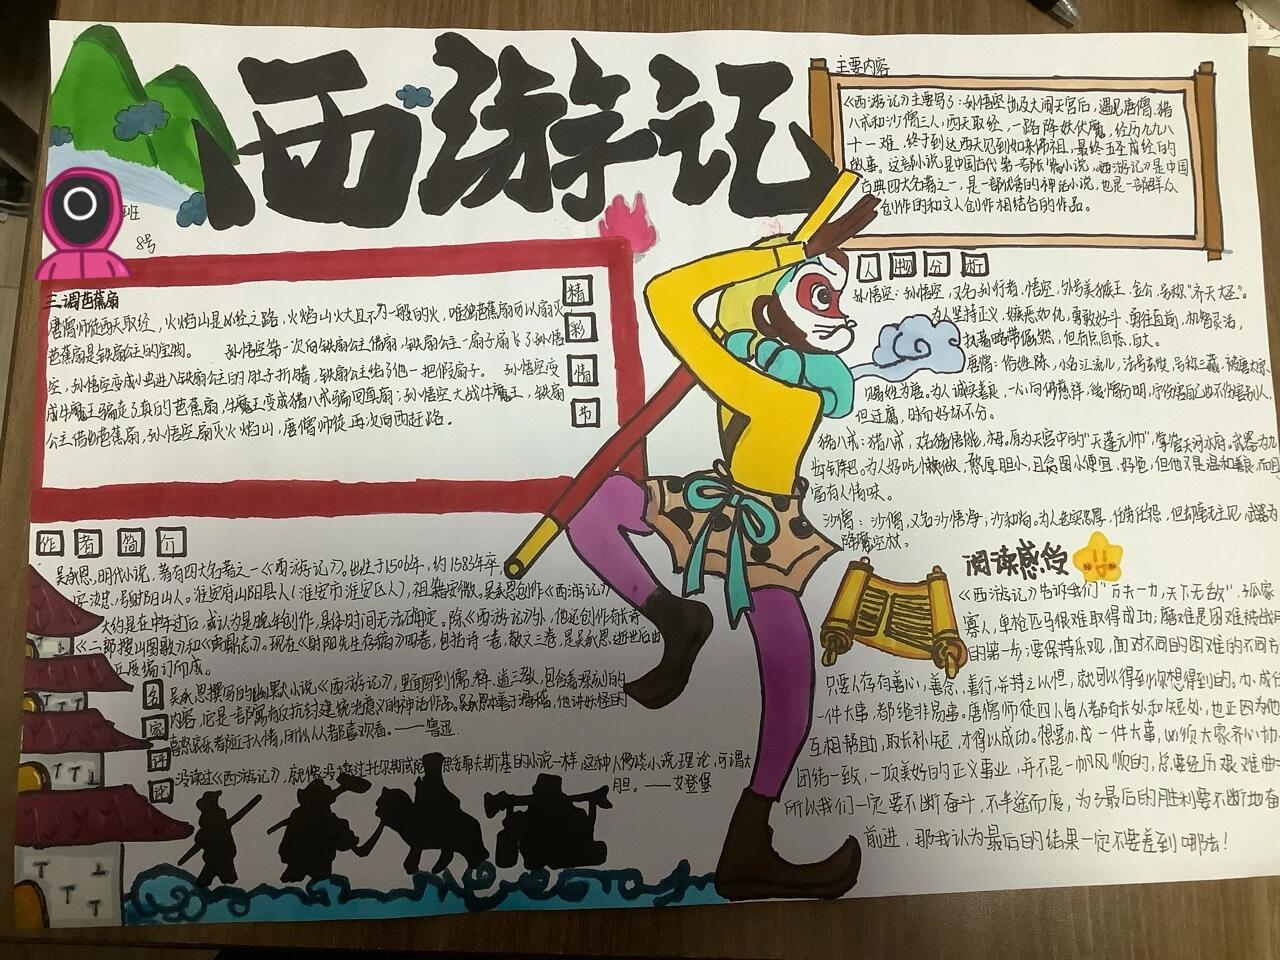 西游记
主要内容
《西游记》主要写了:孙悟空出及大闹天宫后,遇见唐僧.猪
八戒和沙僧三人,西天取经,一路降妖伏魔,经历九九八
十一难,终于到达西天见到如来佛祖,最终五圣成经的
故事。这部小说是中国古代第一部长篇小说,《西游记》是中国
古典四大名著之一,是一部优秀的神话小说,也是一部群众
创作的和文人创作相结合的作品。
班
8号
精彩情节
三调芭蕉扇
唐僧师徒西天取经,火焰山是必经之路,火焰山火大且不为一般的火,唯独芭蕉扇可以扇灭
芭蕉扇是铁扇公主的宝物。 孙悟空第一次向铁扇公主借扇,铁扇公主一扇子扇飞了孙悟
空,孙悟空变成小虫进入铁扇公主的肚子折腾,铁扇公主给了他一把假扇子。 孙悟空变
成牛魔王骗走了真的芭蕉扇,牛魔王变成猪八戒骗回真扇;孙悟空大战牛魔王,铁扇
公主借出芭蕉扇,孙悟空扇灭火焰山,唐僧师徒再次向西赶路。
人物分析
孙悟空:孙悟空,又名孙行者,悟空,外号美猴王,金公,号称“齐天大圣”。
为人坚持正义,嫉恶如仇,勇敢好斗,勇往直前,机智灵活,
执著略带傲然,但有点自彦、自大。
唐僧:俗姓陈,小名江流儿,法号玄奘,号称三藏,被唐太宗
赐姓为唐。为人诚实善良,一心向佛慈祥,
但迂腐,时而好坏不分。
猪八戒:猪八戒,又名猪悟能,原为天宫中的“天蓬元帅”,掌管天河水府。武器为九
齿钉耙。为人好吃懒做,憨厚胆小,且贪图小便宜、好色,但他又是温和善良,而且
富有人情味。
沙僧:沙僧,又名沙悟净,沙和尚。为人老实忠厚,任劳任怨,但却毫无主见,武器为
降魔宝杖。
作者简介
吴承恩,明代小说,著有四大名著之一《西游记》。出生于1506年,约1583年卒,
字汝忠,号射阳山人。淮安府山阳县人(淮安市淮安区人),祖籍安徽,吴承恩创作《西游记》
大约是在中年过后,或认为是晚年创作,具体时间无法确定。除《西游记》外,他还创作有长诗
《二郎搜山图歌》和《禹鼎志》。现在《射阳先生存稿》四卷,包括诗一卷,散文三卷,是吴承恩逝世后由
丘度编订而成。
名家评论
吴承恩撰写的幽默小说《西游记》,里面写到儒.释.道三教,包含着深刻的
内容,它是一部寓有反抗封建统治意义的神话作品。吴承恩本善于滑稽,他讲妖怪的
喜怒哀乐都近于人情,所以人人都喜欢看。——鲁迅
没读过《西游记》,就像没读过托尔斯或陀思妥耶夫斯基的小说一样,这种人侈谈小说理论,可谓大
胆。——艾登堡
阅读感悟
《西游记》告诉我们“万夫一力,天下无敌”,孤家
寡人,单枪匹马很难取得成功;磨难是困难被战胜
的第一步;要保持乐观,面对不同的困难的不同方
只要人存有善心,善念、善行,并持之以恒,就可以得到你想得到的。办成任
一件大事,都绝非易事。唐僧师徒四人每人都有长处和短处,也正因为他
互相帮助,取长补短,才得以成功。想要办成一件大事,必须大家齐心协
团结一致,一项美好的正义事业,并不是一帆风顺的,总要经历艰难曲
所以我们一定要不断奋斗,不半途而废,为了最后的胜利要不断地奋
前进,那我认为最后的结果一定不要差到哪去!